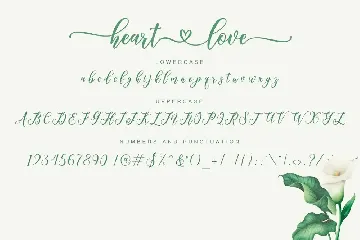 heart love
LOWERCASE
abcdefghijklmnopqrstuvwxyz
UPPERCASE
ABCDEFGHIJKLMNOPQRSTUVWXYZ
NUMBERS AND PUNCTUATION
1234567890